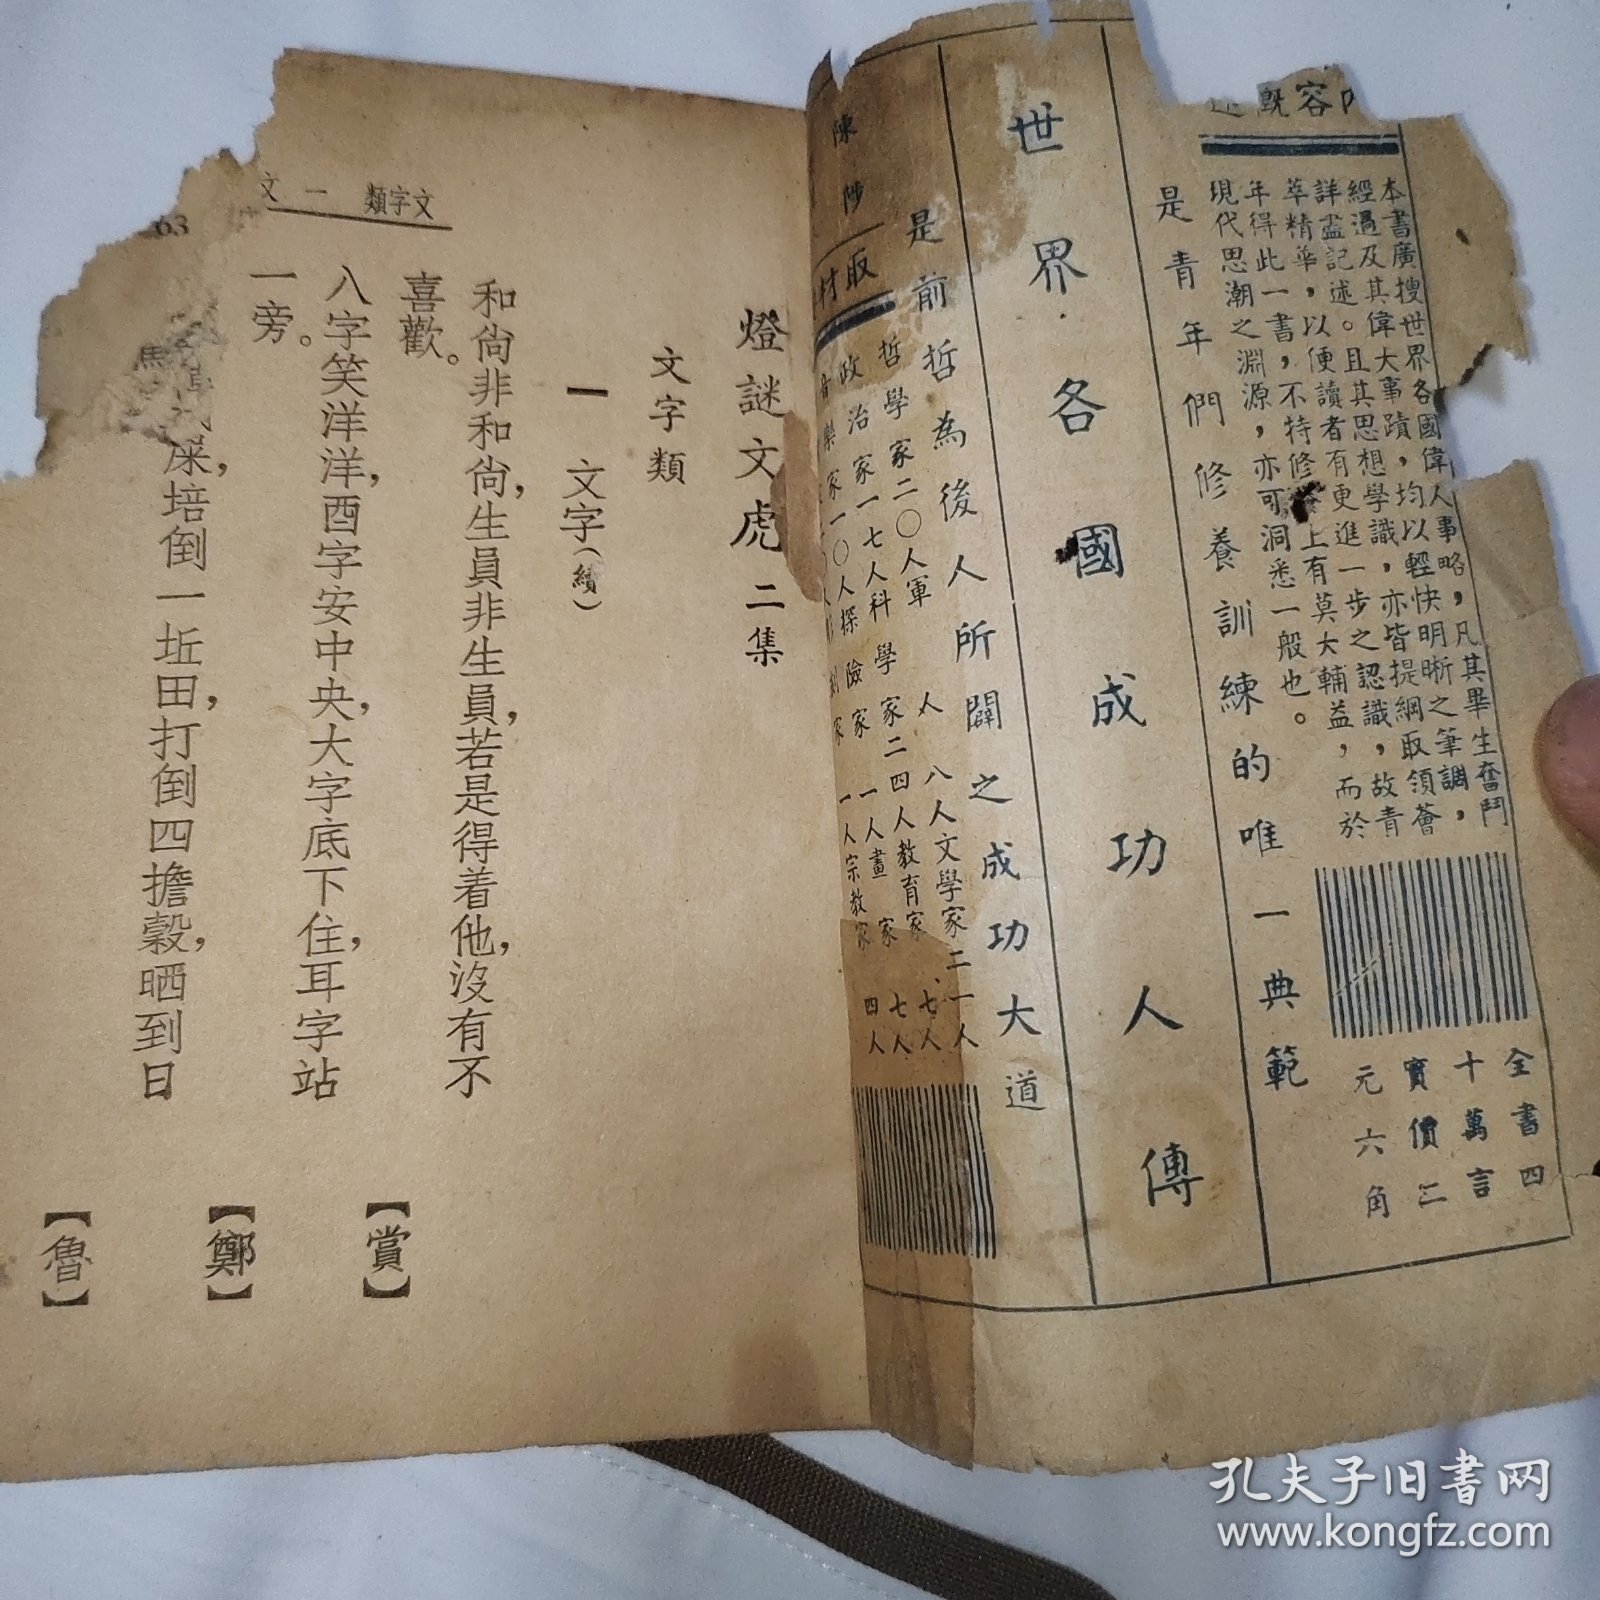 容概
本書廣搜世界各國偉人事略，凡其畢生奮鬥
經過及其偉大事蹟，均以輕快明晰之筆調，
詳盡記述。且其思想學識，亦皆提綱取領薈
萃精華，以便讀者有更進一步之認識，故青
年得此一書，不特修養上有莫大輔益，而於
現代思潮之淵源，亦可洞悉一般也。
全書四
十萬言
實價二
元六角
是青年們修養訓練的唯一典範
世界各國成功人傳
是前哲為後人所闢之成功大道
陳陟
取材
哲學家二〇人軍人八人文學家二一人
政治家一七人科學家二四人教育家七人
音樂家一〇人探險家一人畫家七人
家一人宗教家四人
燈謎文虎 二集
文字類
一 文字(續)
和尙非和尙，生員非生員，若是得着他，沒有不
喜歡。
【賞】
八字笑洋洋，酉字安中央，大字底下住，耳字站
一旁。
【鄭】
屎，培倒一坵田，打倒四擔穀，晒到日
【魯】
文字類 一 文
63
孔夫子旧书网
www.kongfz.com